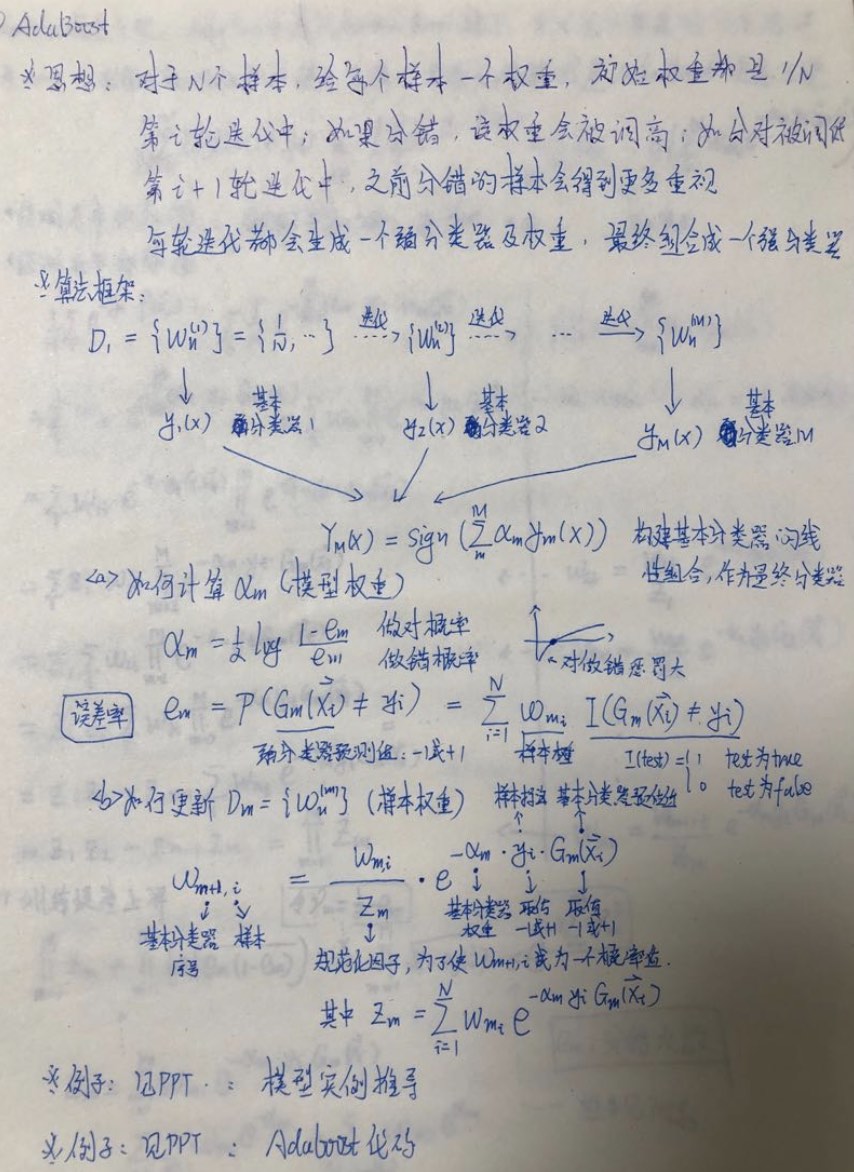 AdaBoost
※思想：对于N个样本，给每个样本一个权重，初始权重都是1/N
第i轮迭代中；如果分错，该权重会被调高；如分对被调低
第i+1轮迭代中，之前分错的样本会得到更多重视
每轮迭代都会生成一个弱分类器及权重，最终组合成一个强分类器
※算法框架：
D₁ = {Wₙ⁽¹⁾} = {1/N, …} 迭代 {Wₙ⁽²⁾} 迭代 … 迭代 {Wₙ⁽ᴹ⁾}
y₁(x) 基本分类器1 y₂(x) 基本分类器2 yM(x) 基本分类器M
YM(x) = sign (∑ₘᴹ αm ym(x)) 构建基本分类器的线
性组合，作为最终分类器
<a>如何计算αm (模型权重)
αm = 1/2 log (1-em)/em 做对概率 做错概率 对做错惩罚大
误差率 em = P(Gm(x⃗i) ≠ yi) = ∑ᵢ₌₁ᴺ ωmi I(Gm(x⃗i) ≠ yi)
弱分类器预测值：-1或+1 样本权重 I(test) = { 1 test为true
0 test为false
<b>如何更新Dm = {Wₙ⁽ᵐ⁾} (样本权重) 样本 基本分类器预测
ωm+1,i = Wm,i / Zm · e^(-αm · yi · Gm(x⃗i))
基本分类器序号 样本 基本分类器权重 取值-1或+1 取值-1或+1
规范化因子，为了使Wm+1,i成为一个概率值.
其中 Zm = ∑ᵢ₌₁ᴺ Wmi e^(-αm yi Gm(x⃗i))
※例子：见PPT：模型实例推导
※例子：见PPT：Adaboost代码